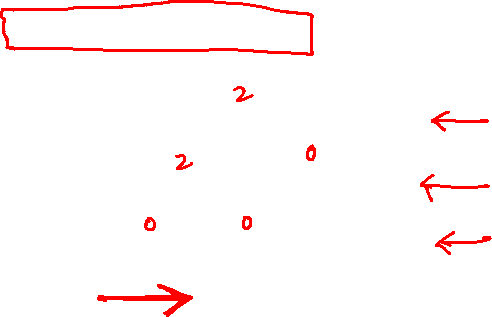 2
2 0
0 0